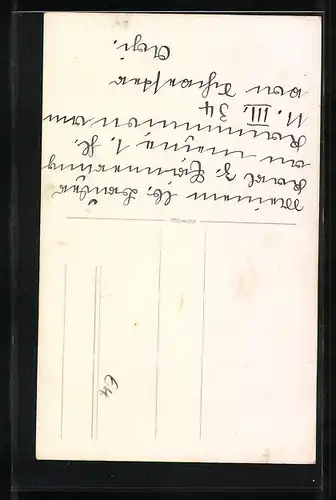 Meinem lb. Bruder
Karl z. Erinnerung
an meine 1. hl.
Kommunion am
11. III. 34
von Schwester
Agi.
64